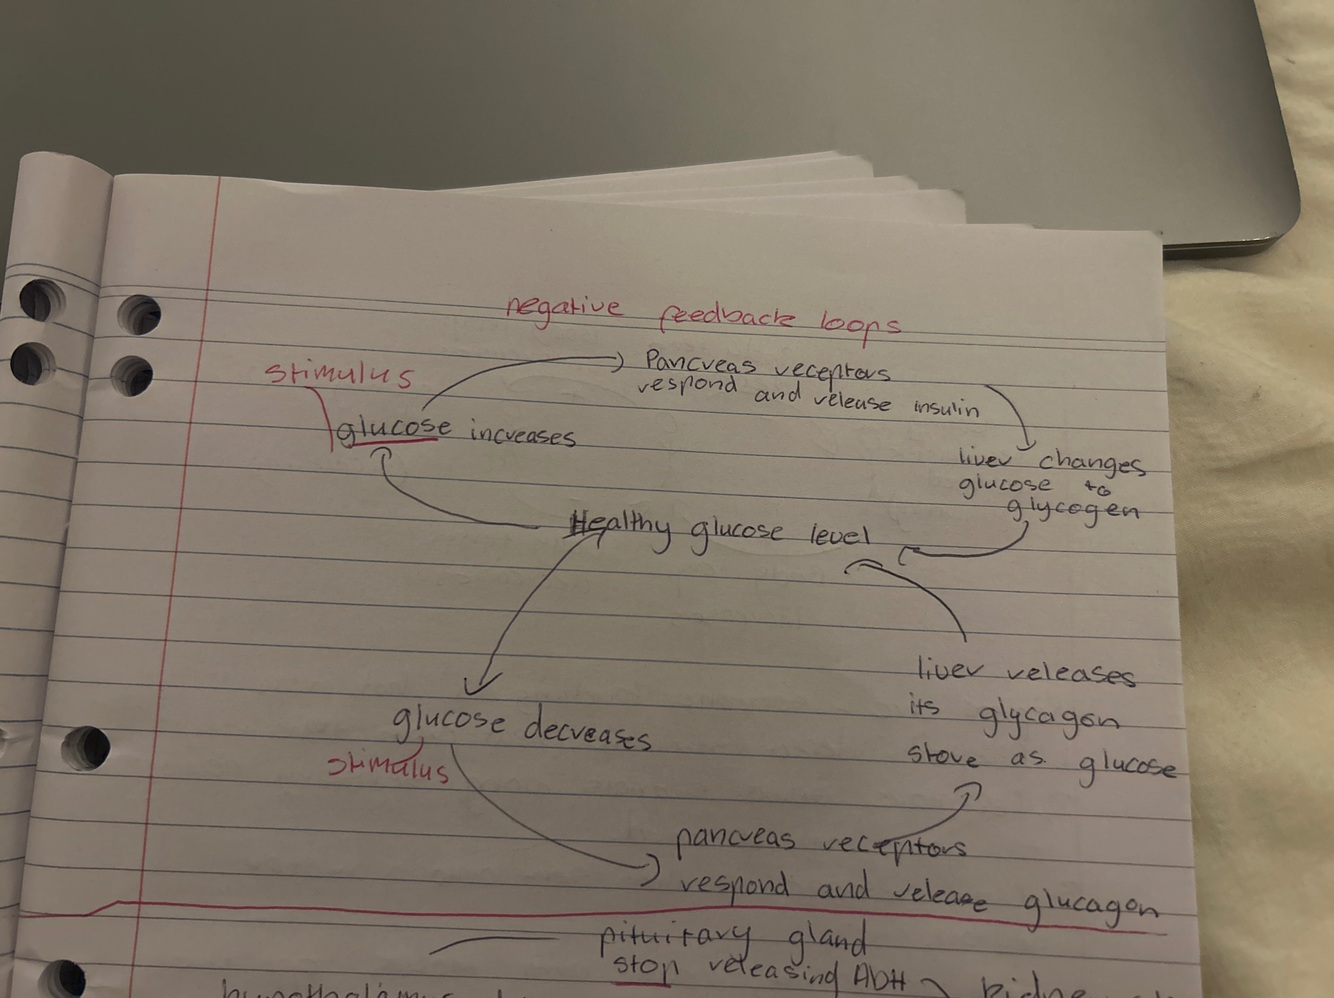 negative feedback loops
stimulus
Pancreas receptors
respond and release insulin
glucose increases
liver changes
glucose to
glycogen
Healthy glucose level
liver releases
its glycagon
store as glucose
glucose decreases
stimulus
pancreas receptors
respond and release glucagon
pituitary gland
stop releasing ADH